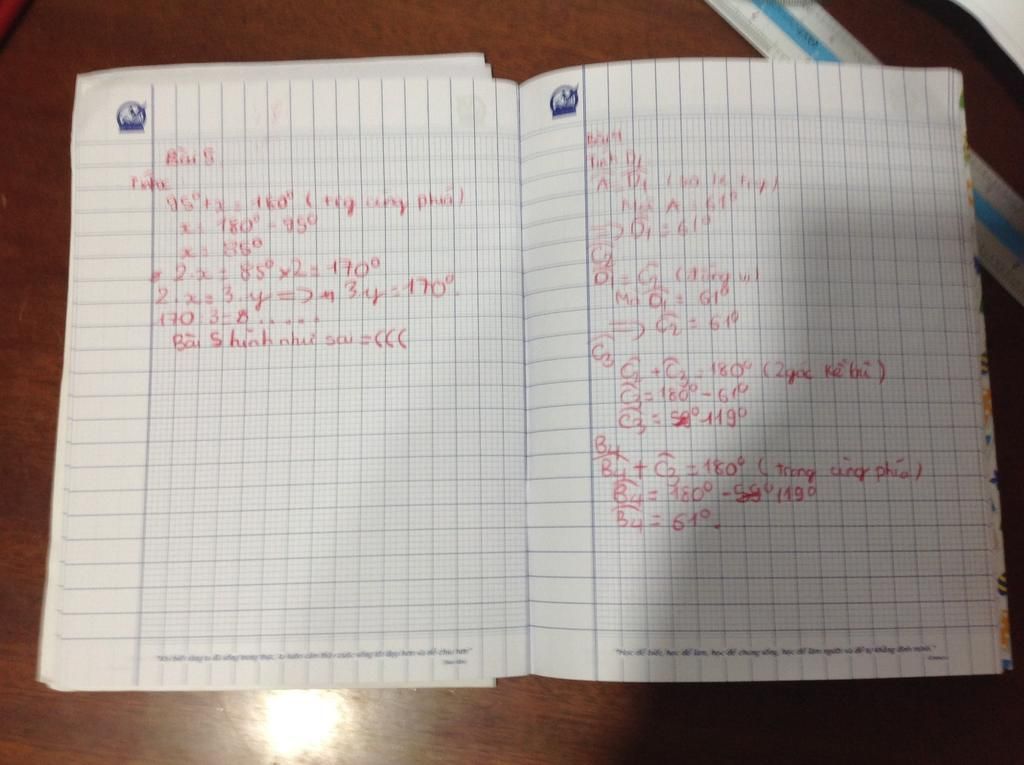 Bài 5
Tính x
95° + x = 180° (trg cùng phía)
x = 180° - 95°
x = 85°
2.x = 85° x 2 = 170°
2.x = 3.y => 3.y = 170°.
170:3=
Bài 5 hình như sai =(((
"
Bài 1
Tính D₁
A = D₁
Mà A = 61°
=> D₁ = 61°
C₂
D₁ = C₂
Mà D₁ = 61°
=> C₂ = 61°
C₃
C₂ + C₃ = 180° (2 góc kề bù)
C = 180° - 61°
C₃ = 119°
B₄
B₄ + C₃ = 180° (trong cùng phía)
B₄ = 180° - 119°
B₄ = 61°.
"Học để biết, học để làm, học để chung sống, học để làm người và để tự khẳng định mình."